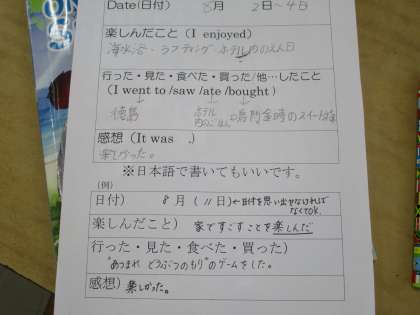 Date(日付) 8月 2日~4日
楽しんだこと (I enjoyed)
海水浴・ラフティング・ホテル内のえん日
行った・見た・食べた・買った/他…したこと
(I went to /saw /ate /bought )
徳島 ホテル 鳴門金時のスイート
感想 (It was .)
楽しかった。
※日本語で書いてもいいです。
(例)
日付) 8月 (11日) や日付を思い出せなければ
なくてOK.
楽しんだこと) 家ですごすことを楽しんだ
行った・見た・食べた・買った)
"あつまれ どうぶつのもり"のゲームをした。
感想) 楽しかった。